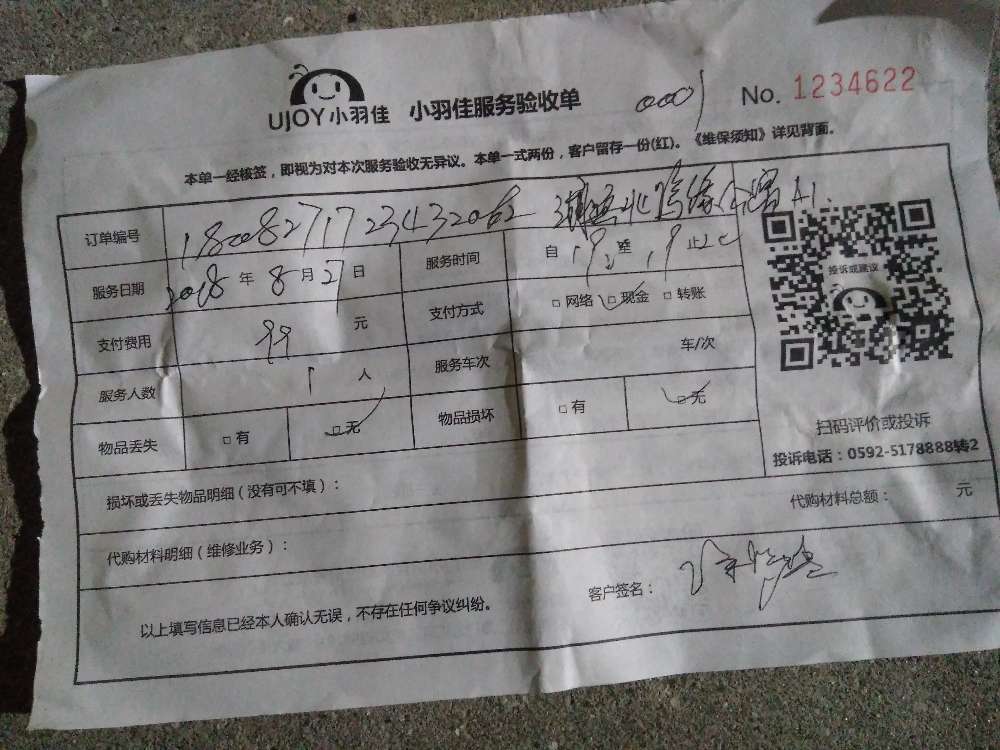 UJOY小羽佳 小羽佳服务验收单 0001 No. 1234622
本单一经核签，即视为对本次服务验收无异议。本单一式两份，客户留存一份(红)。《维保须知》详见背面。
订单编号 A1
服务日期 2018 年 8 月 27 日 服务时间 自 19 止
支付费用 99 元 支付方式 □ 网络 □ 现金 □ 转账
服务人数 1 人 服务车次 车/次
物品丢失 □ 有 □ 无 物品损坏 □ 有 □ 无
投诉或建议
扫码评价或投诉
投诉电话：0592-5178888转2
损坏或丢失物品明细（没有可不填）：
代购材料明细（维修业务）： 代购材料总额： 元
以上填写信息已经本人确认无误，不存在任何争议纠纷。 客户签名：